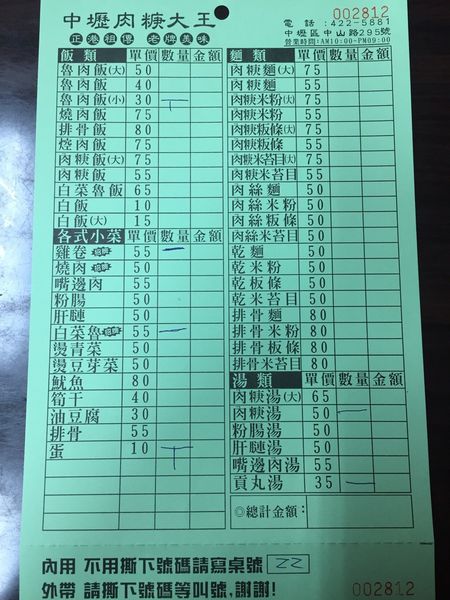 中壢肉焿大王
正港祖傳 老牌美味
002812
電話:422-5881
中壢區中山路295號
營業時間:AM10:00-PM09:00
飯類 單價 數量 金額
魯肉飯(大) 50
魯肉飯 40
魯肉飯(小) 30 丅
燒肉飯 75
排骨飯 80
焢肉飯 75
肉焿飯(大) 75
肉焿飯 55
白菜魯飯 65
白飯 10
白飯(大) 15
各式小菜 單價 數量 金額
雞卷 招牌 55 一
燒肉 招牌 50
嘴邊肉 55
粉腸 50
肝膁 50
白菜魯 招牌 55 一
燙青菜 50
燙豆芽菜 50
魷魚 80
筍干 40
油豆腐 30
排骨 55
蛋 10 丅
麵類 單價 數量 金額
肉焿麵(大) 75
肉焿麵 55
肉焿米粉(大) 75
肉焿米粉 55
肉焿粄條(大) 75
肉焿粄條 55
肉焿米苔目(大) 75
肉焿米苔目 55
肉絲麵 50
肉絲米粉 50
肉絲粄條 50
肉絲米苔目 50
乾麵 50
乾米粉 50
乾板條 50
乾米苔目 50
排骨麵 80
排骨米粉 80
排骨板條 80
排骨米苔目 80
湯類 單價 數量 金額
肉焿湯(大) 65
肉焿湯 50 一
粉腸湯 50
肝膁湯 50
嘴邊肉湯 55
貢丸湯 35 一
◎總計金額:
內用 不用撕下號碼請寫桌號 22
外帶 請撕下號碼等叫號,謝謝!
002812